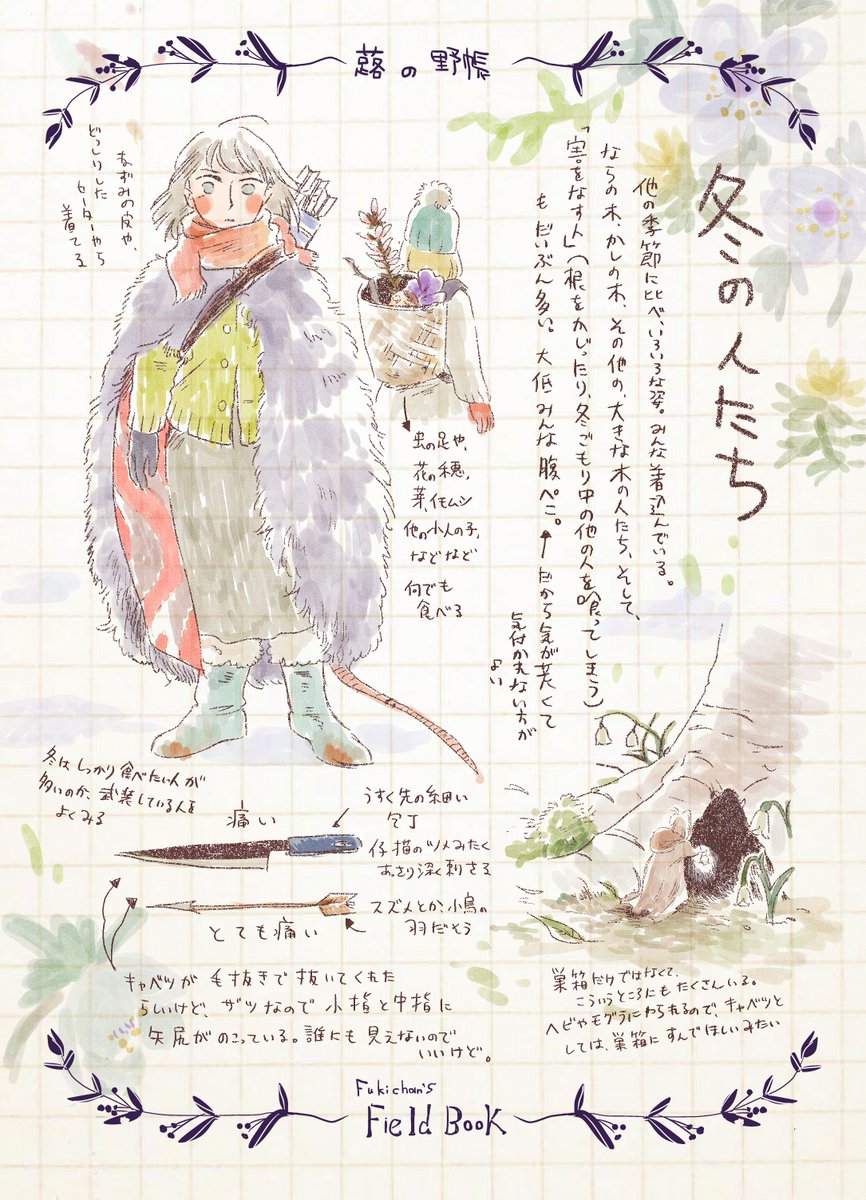 蕗の野帳
冬の人たち
他の季節に比べ、いろいろな姿。みんな着込んでいる。
ならの木、かしの木、その他の、大きな木の人たち、そして、
「害をなす人」(根をかじったり、冬ごもり中の他の人を喰ってしまう)
もだいぶん多い。大低みんな腹ペこ。←だから気が荒くて
気付かれない方が
よい
ねずみの皮や、
どっしりした
セーターやら
着てる
虫の足や、
花の穂、
芽、イモムシ
他の小人の子、
などなど
何でも
食べる
冬はしっかり食べたい人が
多いのか、武装している人を
よくみる
痛い
うすく先の細い
包丁
仔猫のツメみたく
あっさり深く刺さる
とても痛い
スズメとか、小鳥の
羽だそう
キャベツが毛抜きで抜いてくれた
らしいけど、ザツなので小指と中指に
矢尻がのこっている。誰にも見えないので
いいけど。
巣箱だけではなくて、
こういうところにもたくさんいる。
ヘビやモグラにやられるので、キャベツと
しては、巣箱にすんでほしいみたい
Fukichan's
Field Book